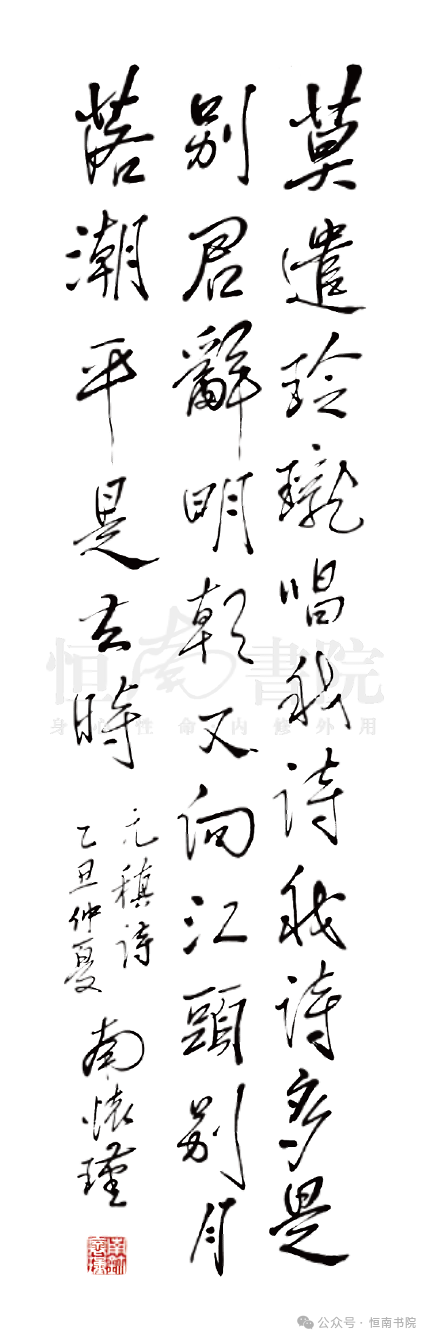 莫遣玲瓏唱我詩我詩多是
別君辭明朝又向江頭別月
落潮平是去時
元稹詩
乙丑仲夏
南懷瑾
恒南書院
身心性命內修外用
公众号 · 恒南书院